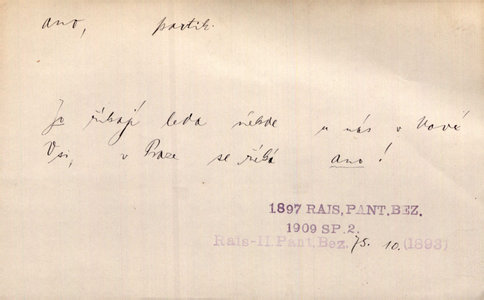 ano, partik.
Jo říkají leda někde u nás v Nové
Vsi, v Praze se říká ano!
1897 RAIS, PANT. BEZ.
1909 SP. 2.
Rais-II. Pant. Bez. 75. 10. (1893)